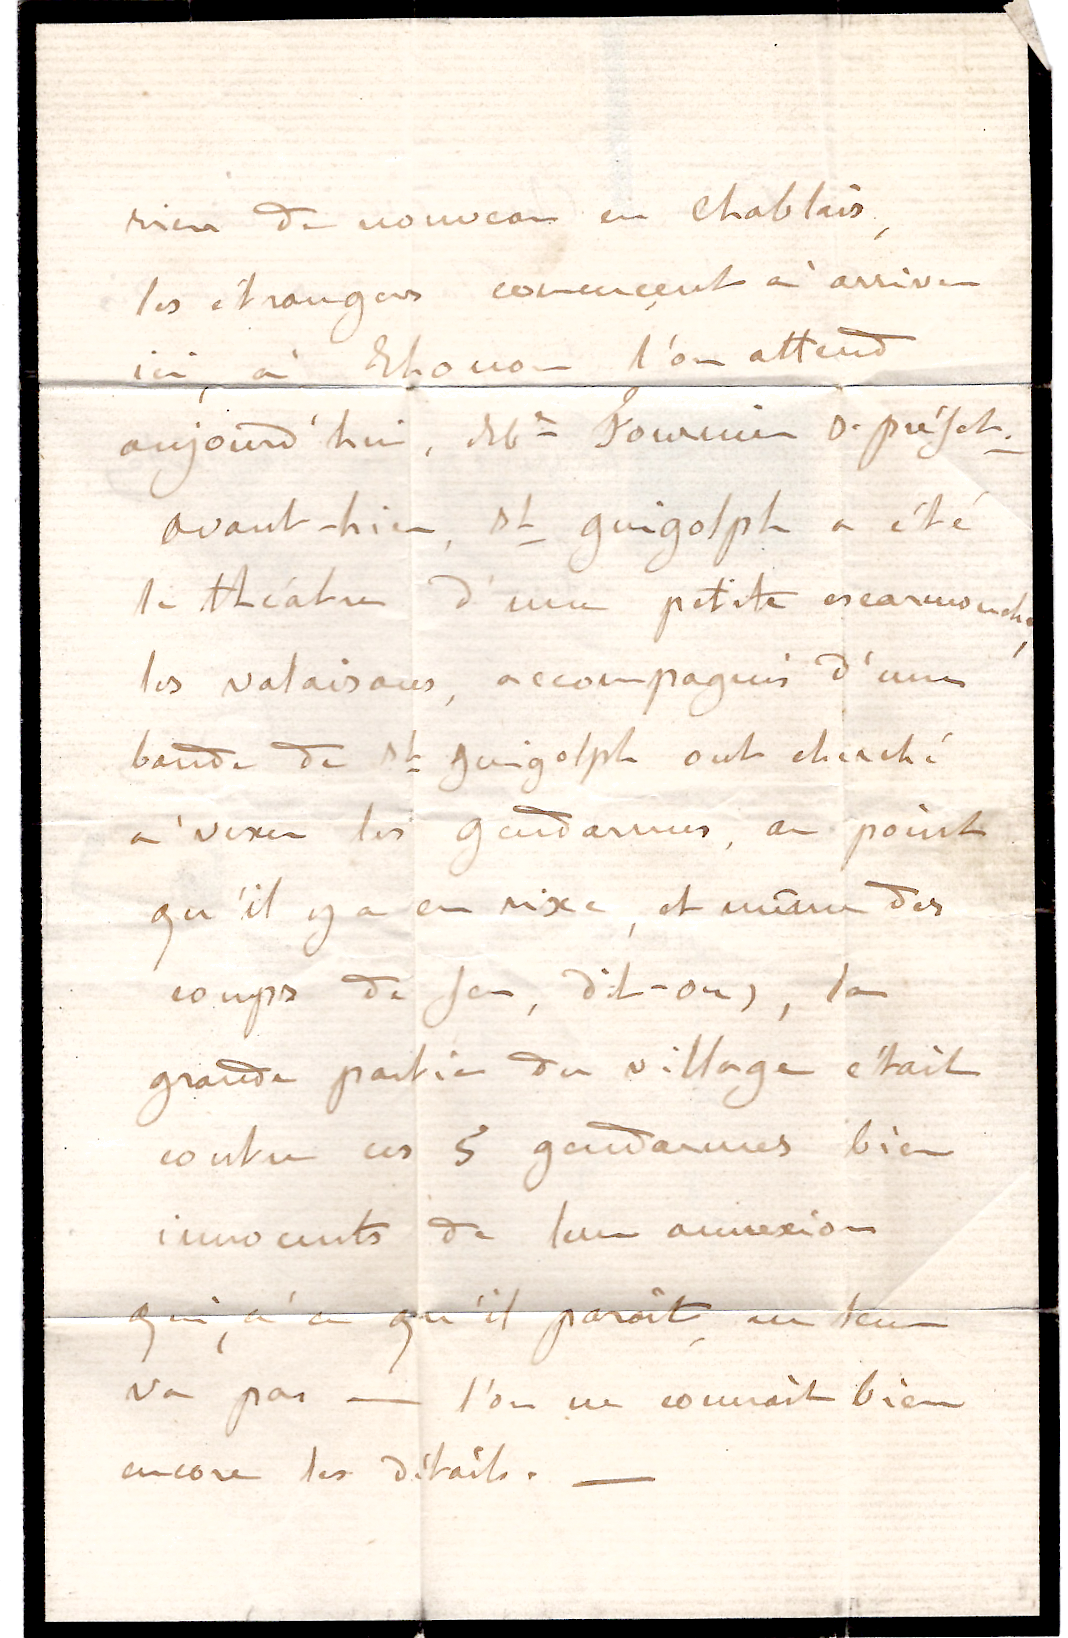 rien de nouveau en Chablais,
les étrangers commençent à arriver
ici, à Thonon l'on attend
aujourd'hui, Mr Fournier S. préfet.
avant-hier, St guigolph a été
le théâtre d'une petite escarmouche,
les valaisans, accompagnés d'une
bande de St guigolph ont cherché
à vexer les gendarmes, au point
qu'il y a eu rixe, et même des
coups de feu, dit-on, la
grande partie du village était
contre ces 5 gendarmes bien
innocents de leur annexion
qui, à ce qu'il paraît, ne leur
va pas — l'on ne connaît bien
encore les détails. —